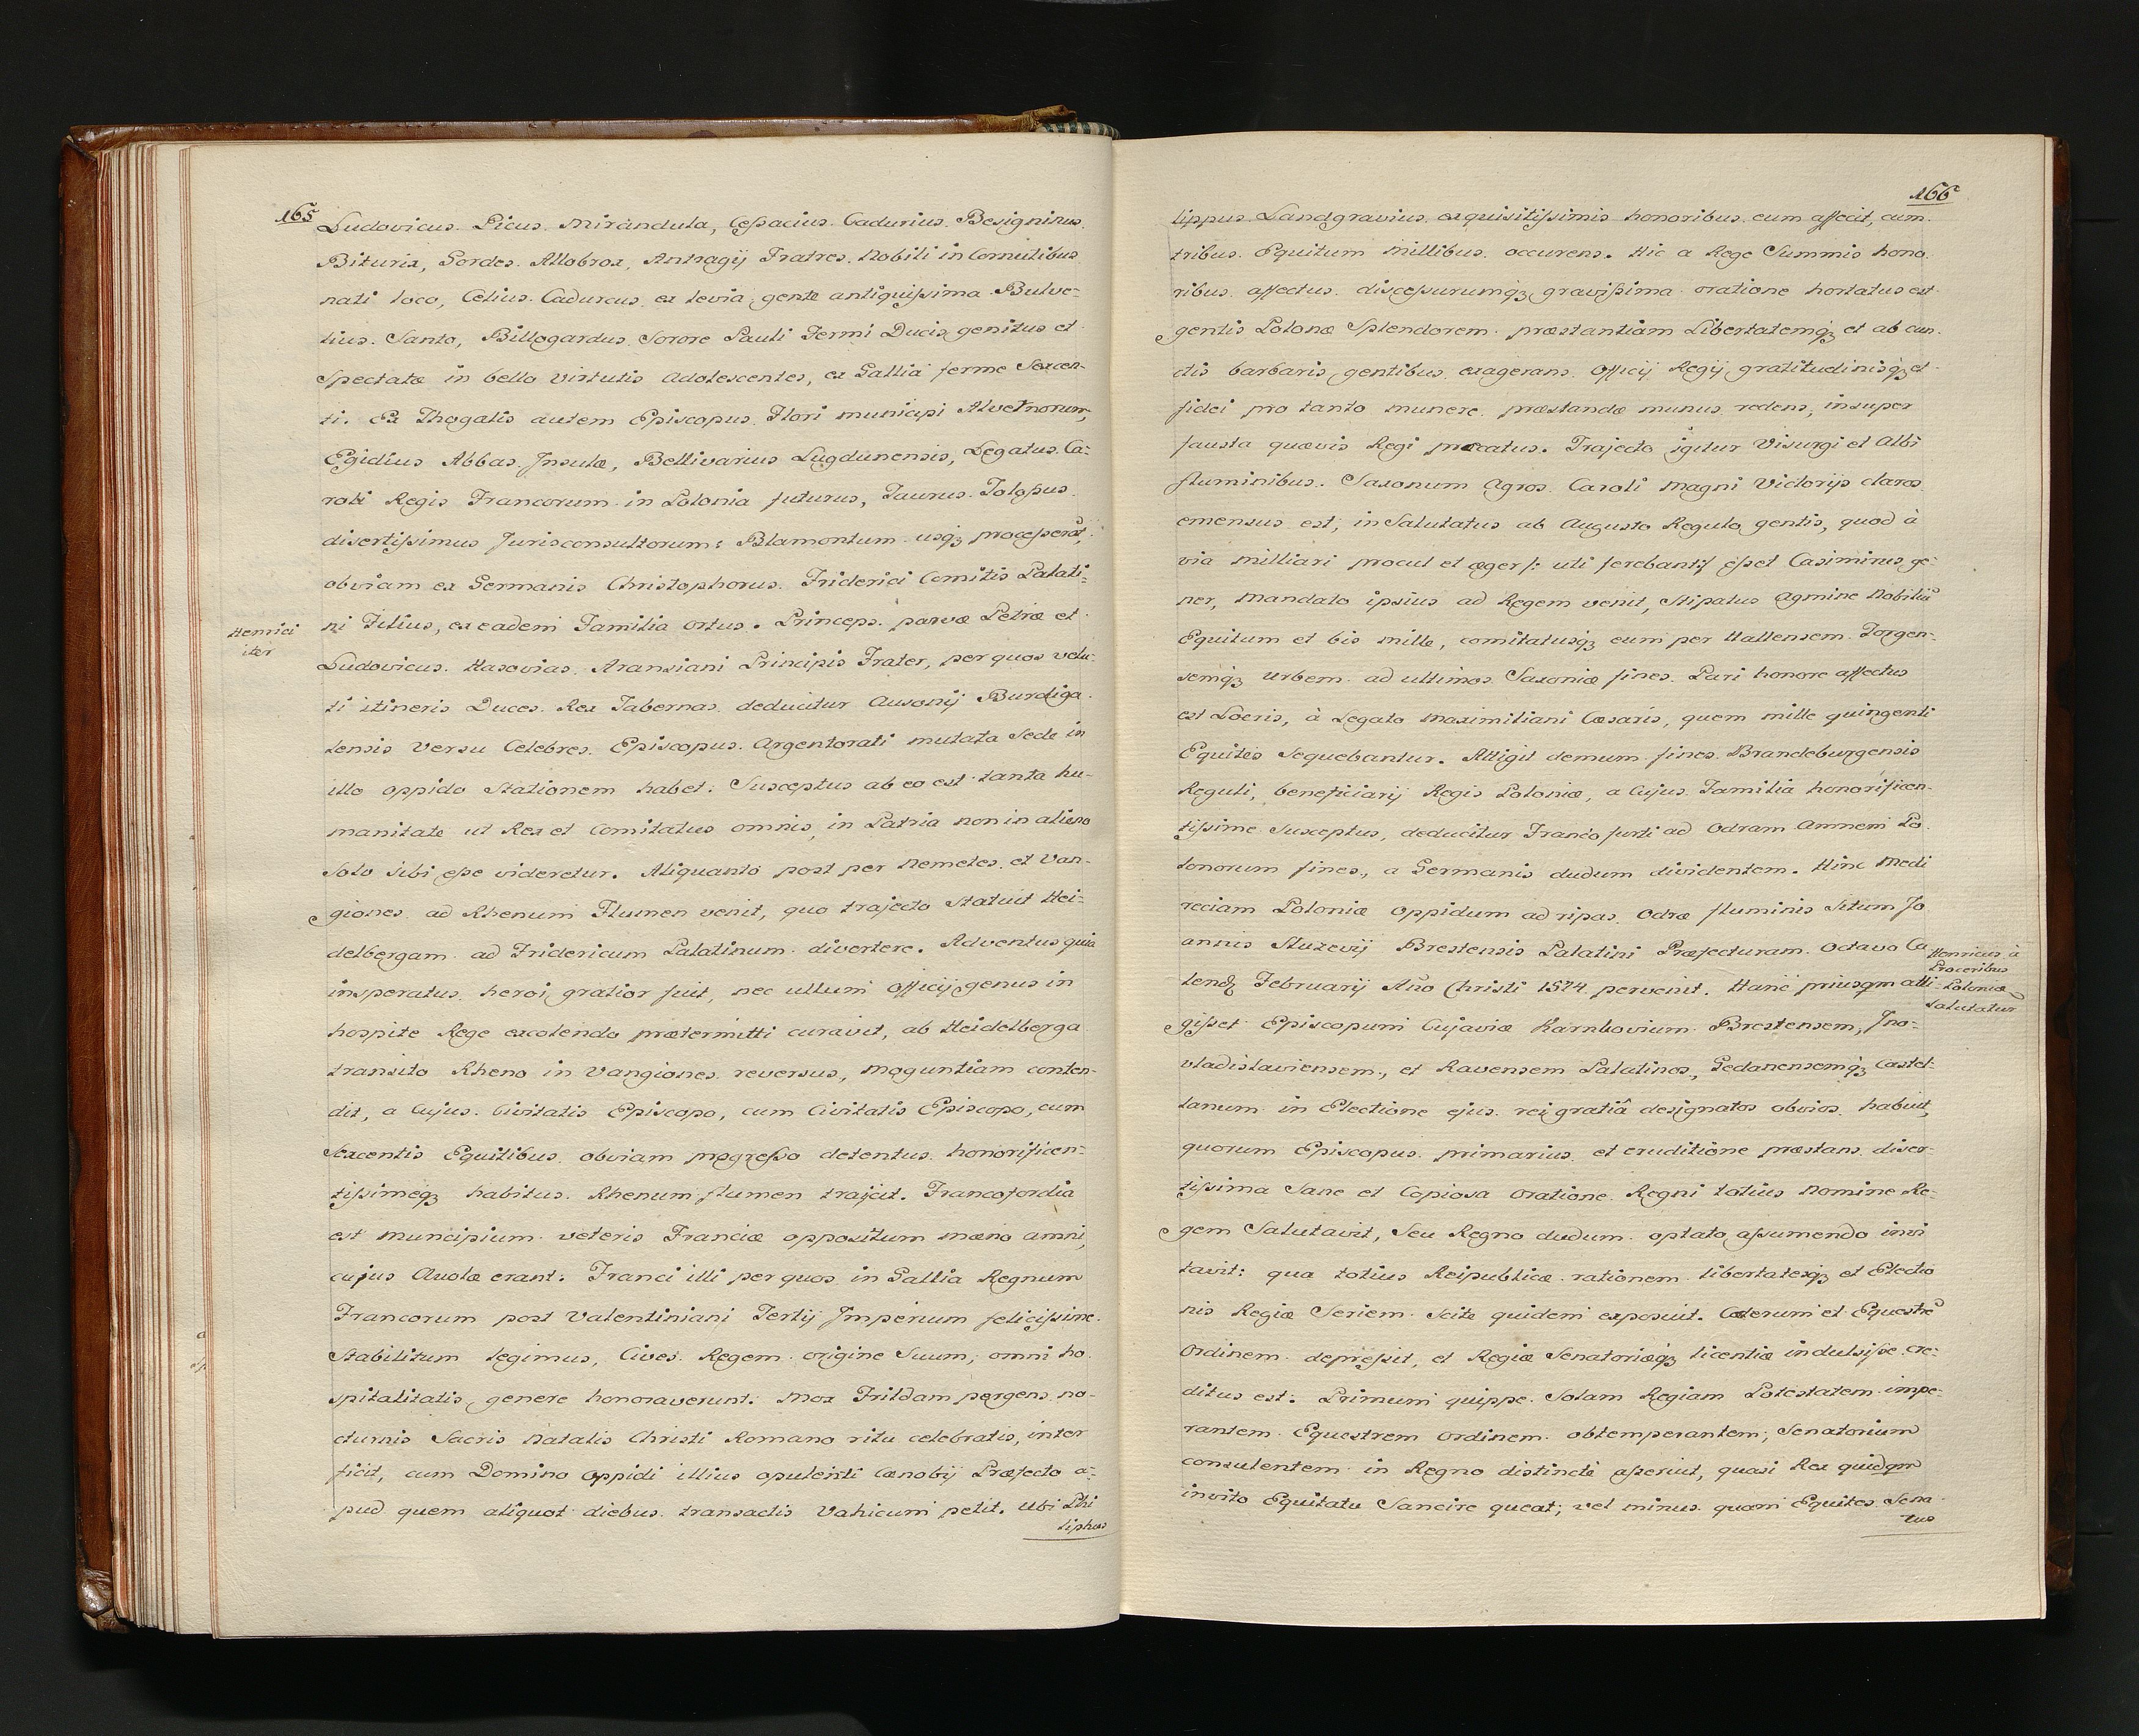 165
Ludovicus Picus Mirandula, Cessacius Cadurius Besigninus
Biturix, Gordes Allobrox, Antragij Fratres Nobili in Cornutibus
nati loco, Celius Cadurcus ex levia gente antiquissima Bulve-
tius Santo, Billogardus Sorore Pauli Termi Ducis genitus et
Spectatæ in bello virtutis Adolescentes, ex Gallia ferme Sexcen-
ti. Ex Thogatis autem Episcopus Flori municipi Alvernorum,
Egidius Abbas Insulæ, Bellivarius Lugdunensis, Legatus Ca-
roli Regis Francorum in Polonia futurus, Taurus Tolossus
disertissimus Jurisconsultorum: Blamontum usq₃ processerat,
obviam ex Germanis Christophorus Friderici Comitis Palati-
ni Filius, ex eadem Familia ortus. Princeps parvæ Petræ et
Henrici
iter
Ludovicus Hasovias Aransiani Principis Frater, per quos velu-
ti itineris Duces Rex Tabernas deducitur Ausonij Burdiga-
lensis versu Celebres. Episcopus Argentorati mutata Sede in
illo oppido Stationem habet: Susceptus ab eo est tanta hu-
manitate ut Rex et Comitatus omnis, in Patria non in alieno
Solo sibi esse videretur. Aliquanto post per Nemetes et Van-
giones ad Rhenum Flumen venit, quo trajecto Statuit Hei-
delbergam ad Fridericum Palatinum divertere. Adventus quia
insperatus heroi gratior fuit, nec ullum Officij genus in
hospite Rege excolendo prætermitti curavit, ab Heidelberga
transito Rheno in Vangiones reversus, Moguntiam conten-
dit, a Cujus Civitatis Episcopo, cum Civitatis Episcopo, cum
Sexcentis Equitibus obviam progresso detentus honorificen-
tissimeq₃ habitus Rhenum flumen traijcit. Francofordia
est muncipium veteris Franciæ oppositum mæno amni,
cujus Avolæ erant: Franci illi per quos in Gallia Regnum
Francorum post Valentiniani Tertij Imperium felicissime
Stabilitum legimus, Cives Regem origine Suum, omni ho-
spitalitatis genere honoraverunt: Mox Frildam pergens no-
cturnis Sacris Natalis Christi Romano ritu celebratis, inter
ficit, cum Domino oppidi illius opulenti Cænobij Præfecto a-
pud quem aliquot diebus transactis Vahicum petit. Ubi Phi
liphus
166
lippus Landgravius exquisitissimis honoribus eum affecit, cum
tribus Equitum Millibus occurens. Hic a Rege Summis hono-
ribus affectus discessurumq₃ gravissima oratione hortatus est
gentis Polonæ Splendorem præstantiam Libertatemq₃ et ab cun-
ctis barbaris gentibus exagerans Officij Regij gratitudinisq₃ et
fidei pro tanto munere præstandæ munus redens, insuper
fausta quævis Regi precatus. Trajecto igitur Visurgi et Albi
fluminibus. Saxonum Agros Caroli Magni Victorijs claros
emensus est, in Salutatus ab Augusto Regulo gentis, quod à
via milliari procul et æger /: uti ferebant :/ esset Casimirus ge-
ner, mandato ipsius ad Regem venit, Stipatus agmine Nobiliū
Equitum et bis mille, comitatusq₃ eum per Hallensem Torgen-
semq₃ Urbem ad ultimos Saxoniæ fines. Pari honore affectus
est Loeris, à Legato Maximiliani Cæsaris, quem mille quingenti
Equites Sequebantur. Attigit demum fines Brandeburgensis
Reguli, beneficiarij Regis Poloniæ, a Cujus Familia honorificen-
tissime Susceptus, deducitur Francofurti ad Odram Amnem Po-
lonorum fines, a Germanis dudum dividentem. Hinc Medi
reciam Poloniæ oppidum ad ripas Odræ fluminis Situm Jo
annis Sluzevij Brestensis Palatini Præfecturam Octavo Ca
Henricus à
Proceribus
Poloniæ
Salutatur
lend Februarij Año Christi 1574 pervenit. Hanc priusqm atti-
gisset Episcopum Cujaviæ Karnkovium Brestensem, Ino-
vladislaviensem, et Ravensem Palatinos, Gedanensemq₃ Castel-
lanum in Electione ejus rei gratiâ designatos obvios habuit,
quorum Episcopus primarius et eruditione præstans diser-
tissima Sane et Copiosa Oratione Regni totius Nomine Re-
gem Salutavit, Seu Regno dudum optato assumendo invi
tavit: qua totius Reipublicæ rationem libertatesq₃ et Electio
nis Regiæ Seriem Scite quidem exposuit. Cæterum et Equestrē
Ordinem depressit, et Regiæ Senatoriæq₃ licentiæ indulsisse cre-
ditus est: Primum quippe Solam Regiam Potestatem impe-
rantem Equestrem Ordinem obtemperantem, Senatorium
consulentem in Regno distinctè asseruit, quasi Rex quidqm
invito Equitatu Sancire queat; vel minus quam Equites Sena-
tus